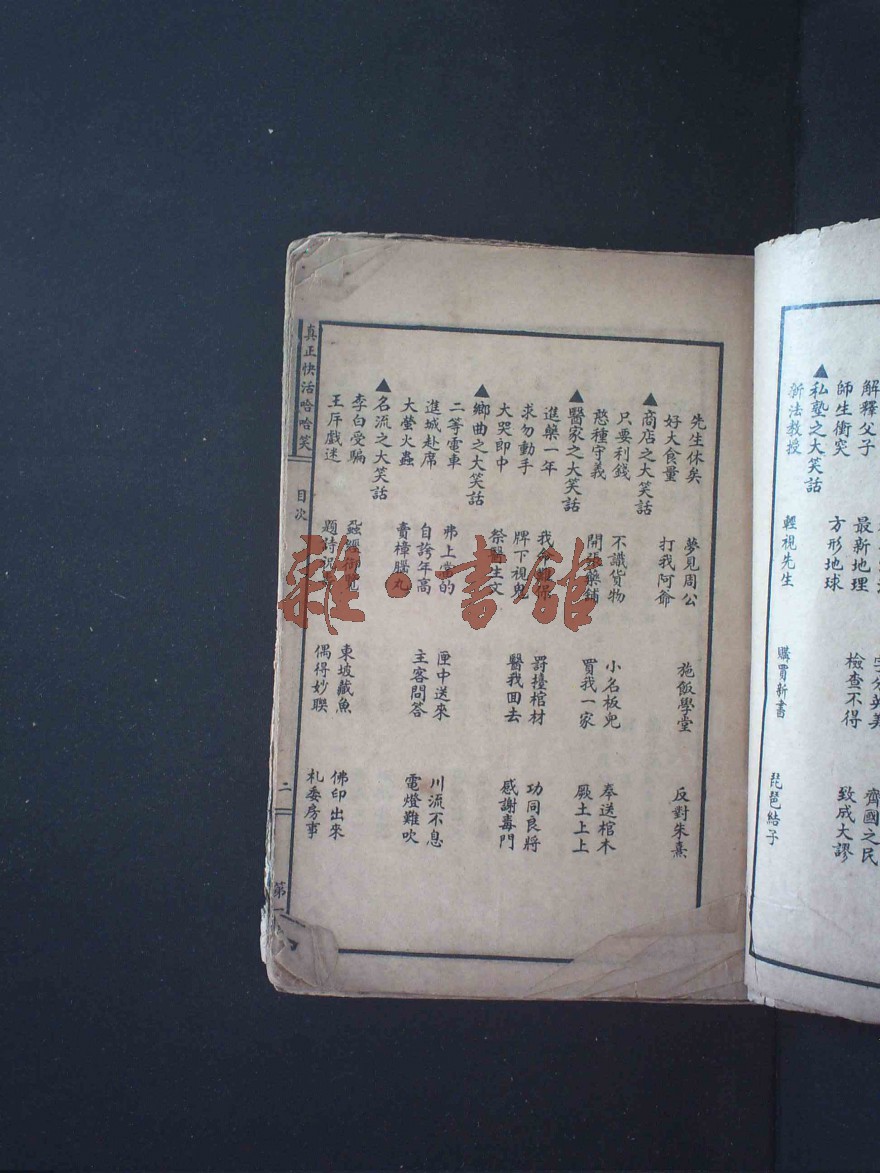 齊國之民
解釋父子 最新地理 檢查不得 致成大謬
師生衝突 方形地球
▲私塾之大笑話
新法教授 輕視先生 購買新書 琵琶結子
先生休矣 夢見周公 施飯學堂 反對朱熹
好大食量 打我阿爺
▲商店之大笑話
只要利錢 不識貨物 小名板兜 奉送棺木
憨種守義 開張藥鋪 買我一家 厥土上上
▲醫家之大笑話
進藥一年 我命難保 罰擡棺材 功同良將
求勿動手 牌下視鬼 醫我回去 感謝毒門
大哭郎中 祭醫生文
▲鄉曲之大笑話
二等電車 弗上當的 匣中送來 川流不息
進城赴席 自誇年高 主客問答 電燈難吹
大螢火蟲 賣樟腦丸
▲名流之大笑話
李白受騙 東坡藏魚 佛印出來
王厈戲迷 題詩 偶得妙聯 札委房事
真正快活哈哈笑 目次 二 第一
雜·書館